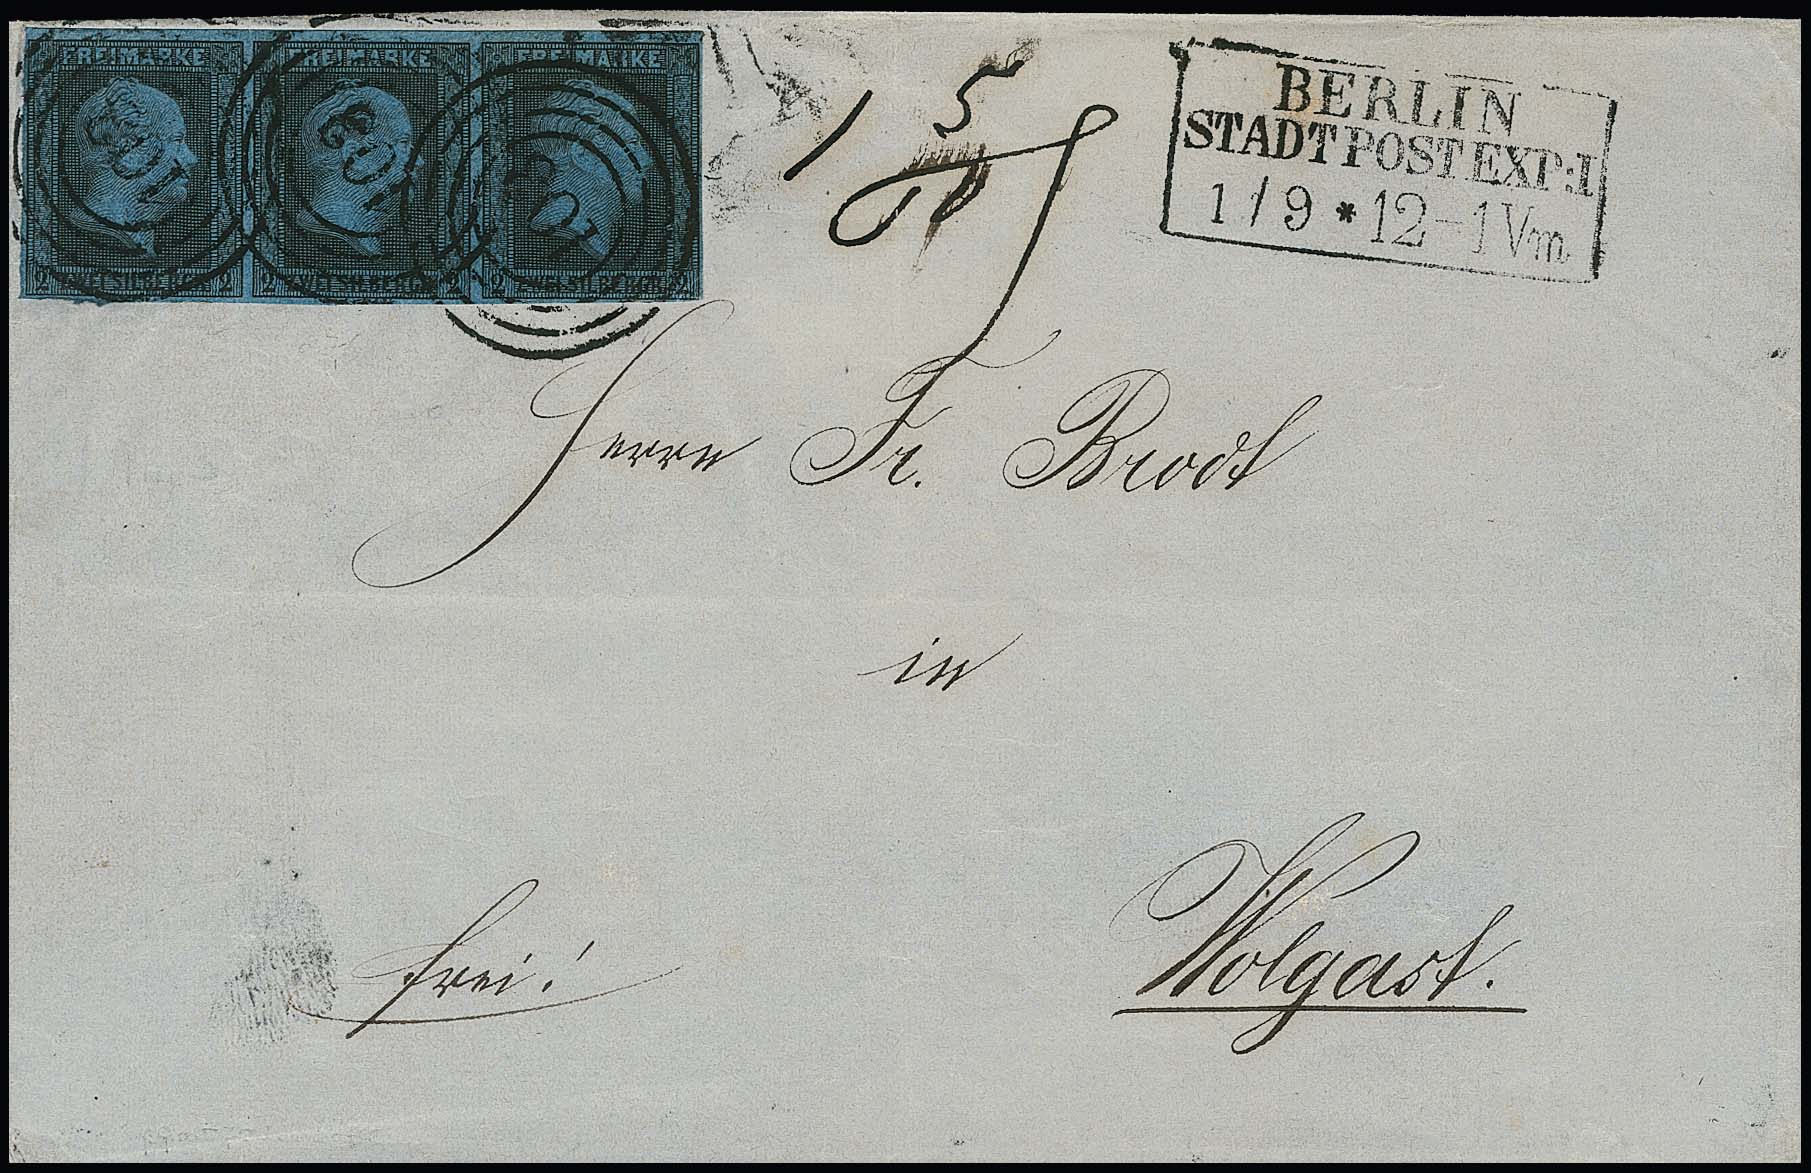 FREIMARKE FREIMARKE FREIMARKE
2 ZWEI SILBERGR. 2 2 ZWEI SILBERGR. 2 2 ZWEI SILBERGR. 2
103
BERLIN
STADTPOST EXP:I
1/9 * 12-1 Vm
Herrn Fr. Brodt
in
Wolgast.
frei!